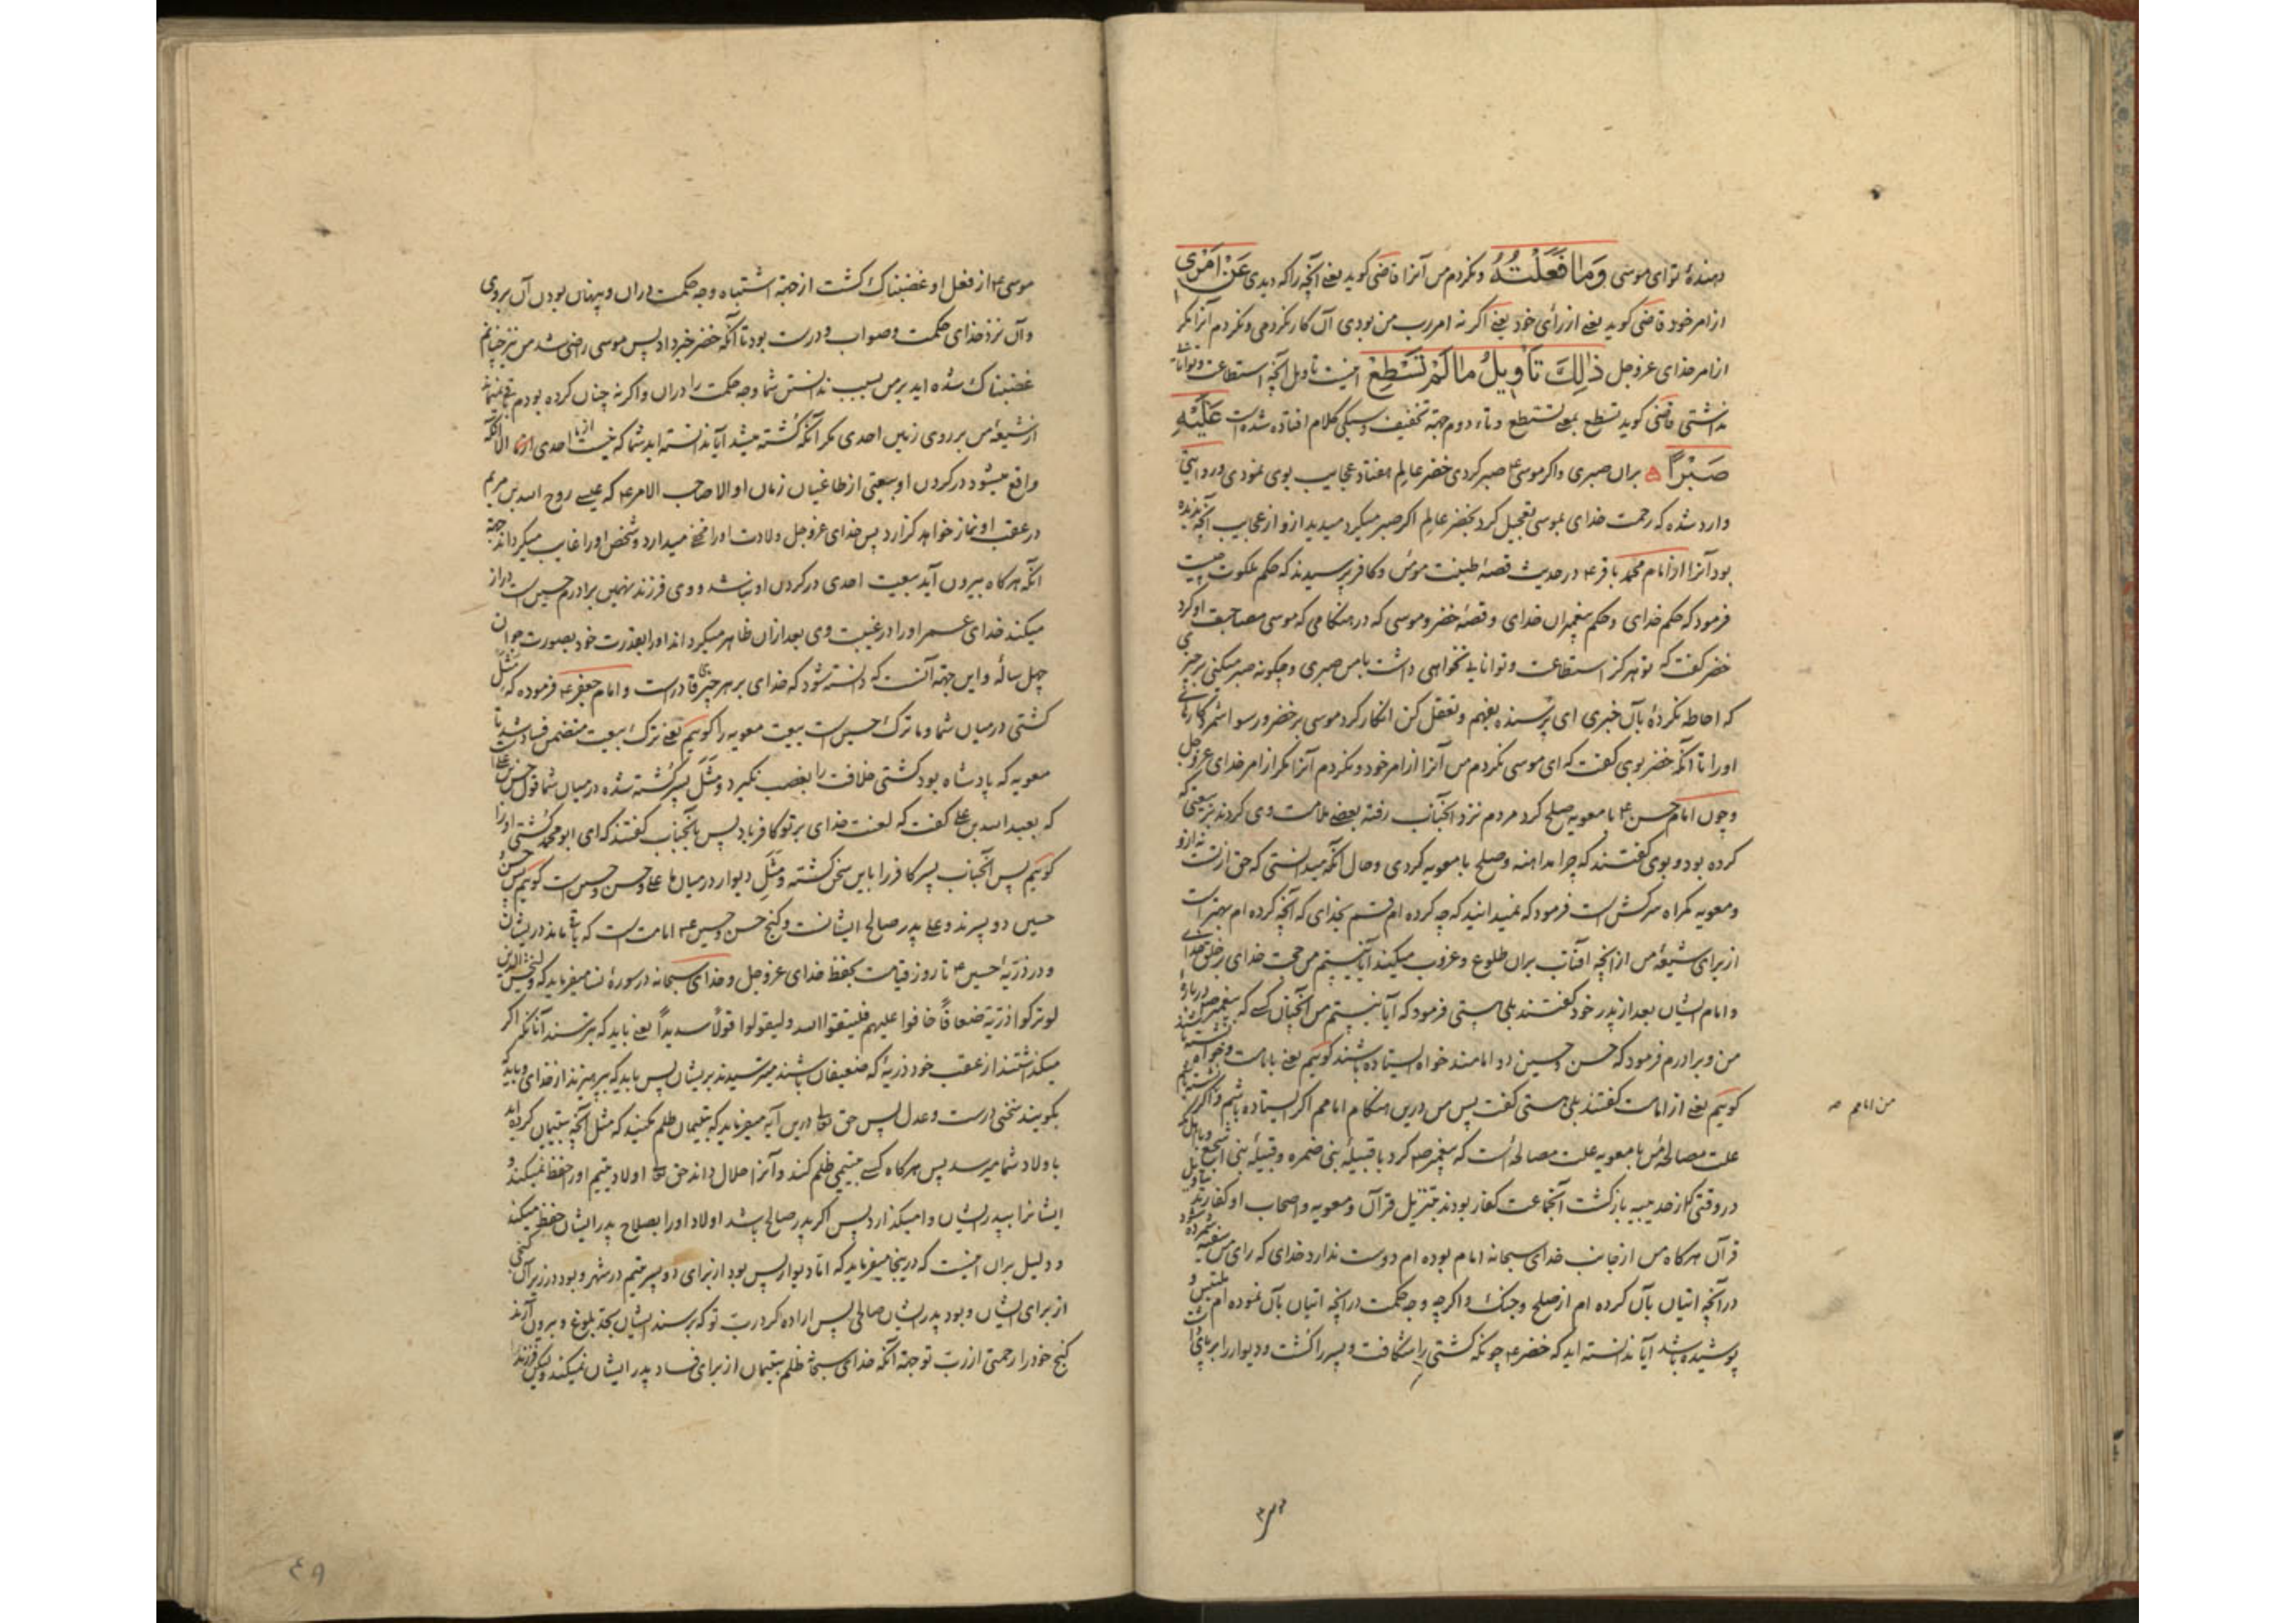 دهندهٔ توای موسی وَمَا فَعَلْتُهُ ونکردم من آنرا قاضی کوید یعنی آنچه راکه دیدی عَنْ اَمْرِی
از امر خود قاضی کوید یعنی از رأی خود یعنی اکر نه امر رب من بودی آن کار نکردمی ونکردم آنرا مکر
از امر خدای عزوجل ذٰلِكَ تَأْوِیلُ مَا لَمْ تَسْطِعْ اینست تاویل آنچه استطاعت وتوانائی
نداشتی قاضی کوید تسطع بمعنی تستطع وتاء دوم جهة تخفیف وسبکی کلام افتاده شده است عَلَیْهِ
صَبْرًا بران صبری واکر موسی۴ صبر کردی خضر عالم هفتاد عجایب بوی نمودی ودر روایتی
وارد شده که رحمت خدای بموسی تعجیل کرد بخضر عالم اکر صبر میکرد میدید ازو از عجایب آنچه ندیده
بود آنرا از امام محمد باقر۴ در حدیث قصهٔ طینت مومن وکافر پرسیدند که حکم ملکوت چیست
فرمود که حکم خدای وحکم پیغمبران خدای وقصهٔ خضر وموسی که در هنکامی که موسی مصاحبت او کرد
خضر کفت که تو هرکز استطاعت وتوانایی نخواهی داشت بامن صبری وچکونه صبر میکنی بر چیزی
که احاطه نکردهٔ بآن خبری ای پرسنده بفهم وتعقل کن انکار کرد موسی بر خضر ورسوا شمرد کارهای
اورا تا آنکه خضر بوی کفت که ای موسی نکردم من آنرا از امر خود ونکردم آنرا مکر از امر خدای عزوجل
وچون امام حسن۴ با معویه صلح کرد مردم نزد آنجناب رفته بعضی ملامت وی کردند بر بیعتی که
کرده بود وبوی کفتند که چرا مداهنه وصلح با معویه کردی وحال آنکه میدانستی که حق از تست نه ازو
ومعویه کمراه سرکش است فرمود که نمیدانید که چه کرده ام قسم بخدای که آنچه کرده ام بهتر است
از برای شیعهٔ من از آنچه آفتاب بران طلوع وغروب میکند آیا نیستم من حجت خدای بر خلق خدای
وامام ایشان بعد از پدر خود کفتند بلی هستی فرمود که آیا نیستم من آنچنان کسی که پیغمبر ص دربارهٔ
من وبرادرم فرمود که حسن وحسین دو امامند خواه ایستاده باشند کوییم یعنی بامامت وخواه نشسته باشند
کوییم یعنی از امامت کفتند بلی هستی کفت پس من درین هنکام امامم اکر ایستاده باشم واکر نشسته باشم
من امامم صه
علت مصالحهٔ من با معویه علت مصالحهٔ است که پیغمبر ص کرد با قبیلهٔ بنی ضمره وقبیلهٔ بنی اشجع وبا اهل مکه
در وقتی که از حدیبیه بازکشت آنجماعت کفار بودند بتنزیل قرآن ومعویه واصحاب او کفارند بتاویل
قرآن هرکاه من از جانب خدای سبحانه امام بوده ام دوست ندارد خدای که رای من سفیه شمرده شود
در آنچه اتیان بآن کرده ام از صلح وجنک واکرچه وجه حکمت در آنچه اتیان بآن نموده ام ملتبس و
پوشیده باشد آیا ندانسته اید که خضر۴ چونکه کشتی را شکافت وپسر را کشت ودیوار را برپای داشت
موسی۴ از فعل او غضبناک کشت از جهة اشتباه وجه حکمت دران وپنهان بودن آن بروی
وآن نزد خدای حکمت وصواب ودرست بود تا آنکه خضر خبر داد پس موسی راضی شد من نیز چنانم
غضبناک شده اید بر من بسبب ندانستن شما وجه حکمت را دران واکر نه چنان کرده بودم باقی نمیماند
از شیعهٔ من بر روی زمین احدی مکر آنکه کشته میشد آیا ندانسته اید شما که نیست احدی از ما الا آنکه
واقع میشود در کردن او بیعتی از طاغیان زمان او الا صاحب الامر۴ که عیسی روح الله بن مریم
در عقب او نماز خواهد کزارد پس خدای عزوجل ولادت اورا مخفی میدارد وشخص اورا غایب میکرداند جهة
آنکه هرکاه بیرون آید بیعت احدی در کردن او نباشد ووی فرزند نهمین برادرم حسین است دراز
میکند خدای عمر اورا در غیبت وی بعد ازان ظاهر میکرداند اورا بقدرت خود بصورت جوان
چهل ساله واین جهة آنست که دانسته شود که خدای بر هر چیزی قادر است وامام جعفر۴ فرموده که مثل
کشتی در میان شما وما ترک حسین است بیعت معویه را کوییم یعنی ترک بیعت متضمن فساد شد تا
معویه که پادشاه بود کشتی خلافت را بغصب نکیرد ومثل پسر کشته شده در میان شما قول حسن بن علی است
که بعبید الله بن علی کفت که لعنت خدای بر تو کافر باد پس بآنجناب کفتند که ای ابو محمد کشتی اورا
کوییم پس آنجناب پسر کافر را باین سخن کشته ومثل دیوار در میان ما علی وحسن وحسین است کوییم پس حسن و
حسین دو پسرند وعلی پدر صالح ایشانست وکنج حسن وحسین۴ امامت است که باقی ماند در ایشان
ودر ذریهٔ حسین۴ تا روز قیامت بحفظ خدای عزوجل وخدای سبحانه در سورهٔ نسا میفرماید که ولیخش الذین
لو ترکوا ذریّة ضعافًا خافوا علیهم فلیتقوا الله ولیقولوا قولًا سدیدًا یعنی باید که بترسند آنانکه اکر
میکذاشتند از عقب خود ذریهٔ که ضعیفان باشند میترسیدند بریشان پس باید که بپرهیزند از خدای وباید که
بکویند سخنی درست وعدل پس حق تعالی درین آیه میفرماید که بیتیمان ظلم مکنید که مثل آنچه بیتیمان کرده اید
باولاد شما میرسد پس هرکاه کسی بیتیمی ظلم کند وآنرا حلال داند حق تعالی اولاد یتیم اورا حفظ نمیکند و
ایشانرا بپدر ایشان وامیکذارد پس اکر پدر صالح باشد اولاد اورا بصلاح پدر ایشان حفظ میکند
ودلیل بران اینست که درینجا میفرماید که اما دیوار پس بود از برای دو پسر یتیم در شهر وبود در زیر آن کنجی
از برای ایشان وبود پدر ایشان صالح پس اراده کرد ربّ تو که برسند ایشان بحد بلوغ وبیرون آرند
کنج خود را رحمتی از ربّ تو جهة آنکه خدای سبحانه ظلم بیتیمان از برای فساد پدر ایشان نمیکند ولیکن فرزند
٤٩